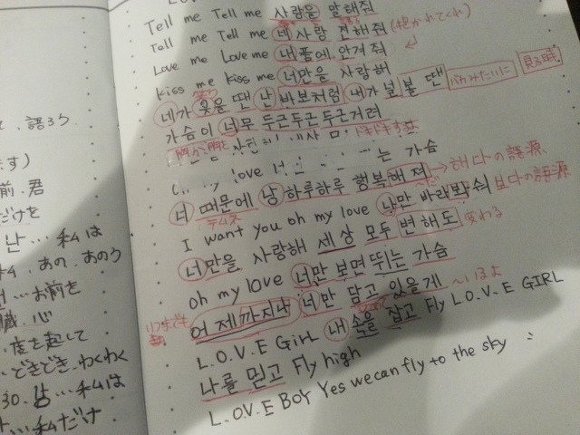 、語ろう
ます)
前、君
だけを
난…私は
私、あの、あのう
…お前を
臓、心
度を起して
できでき、わくわく
30. 남…私は
…私だけ
Tell me Tell me 사랑을 말해줘
Tell me Tell me 네 사랑 전해줘
Love me Love me 내 품에 안겨 줘 (抱かれてくれ)
Kiss me Kiss me 너만을 사랑해
笑う
네가 웃을 땐 난 바보처럼 내가 널 볼 땐 バカみたいに 見る時
가슴이 너무 두근두근두근거려
胸が
love 는 가슴
너 때문에 난 하루하루 행복해 져 → 하다の語源
I want you oh my love 나만 바라봐 줘 보다の語源
너만을 사랑해 세상 모두 변해도 変わる
oh my love 너만 보면 뛰는 가슴
어제까지나 너만 담고 있을게 〜いるよ
いつまでも
L.O.V.E GIRL 내 손을 잡고 Fly L.O.V.E GIRL
나를 믿고 Fly high
L.O.V.E BOY Yes we can fly to the sky